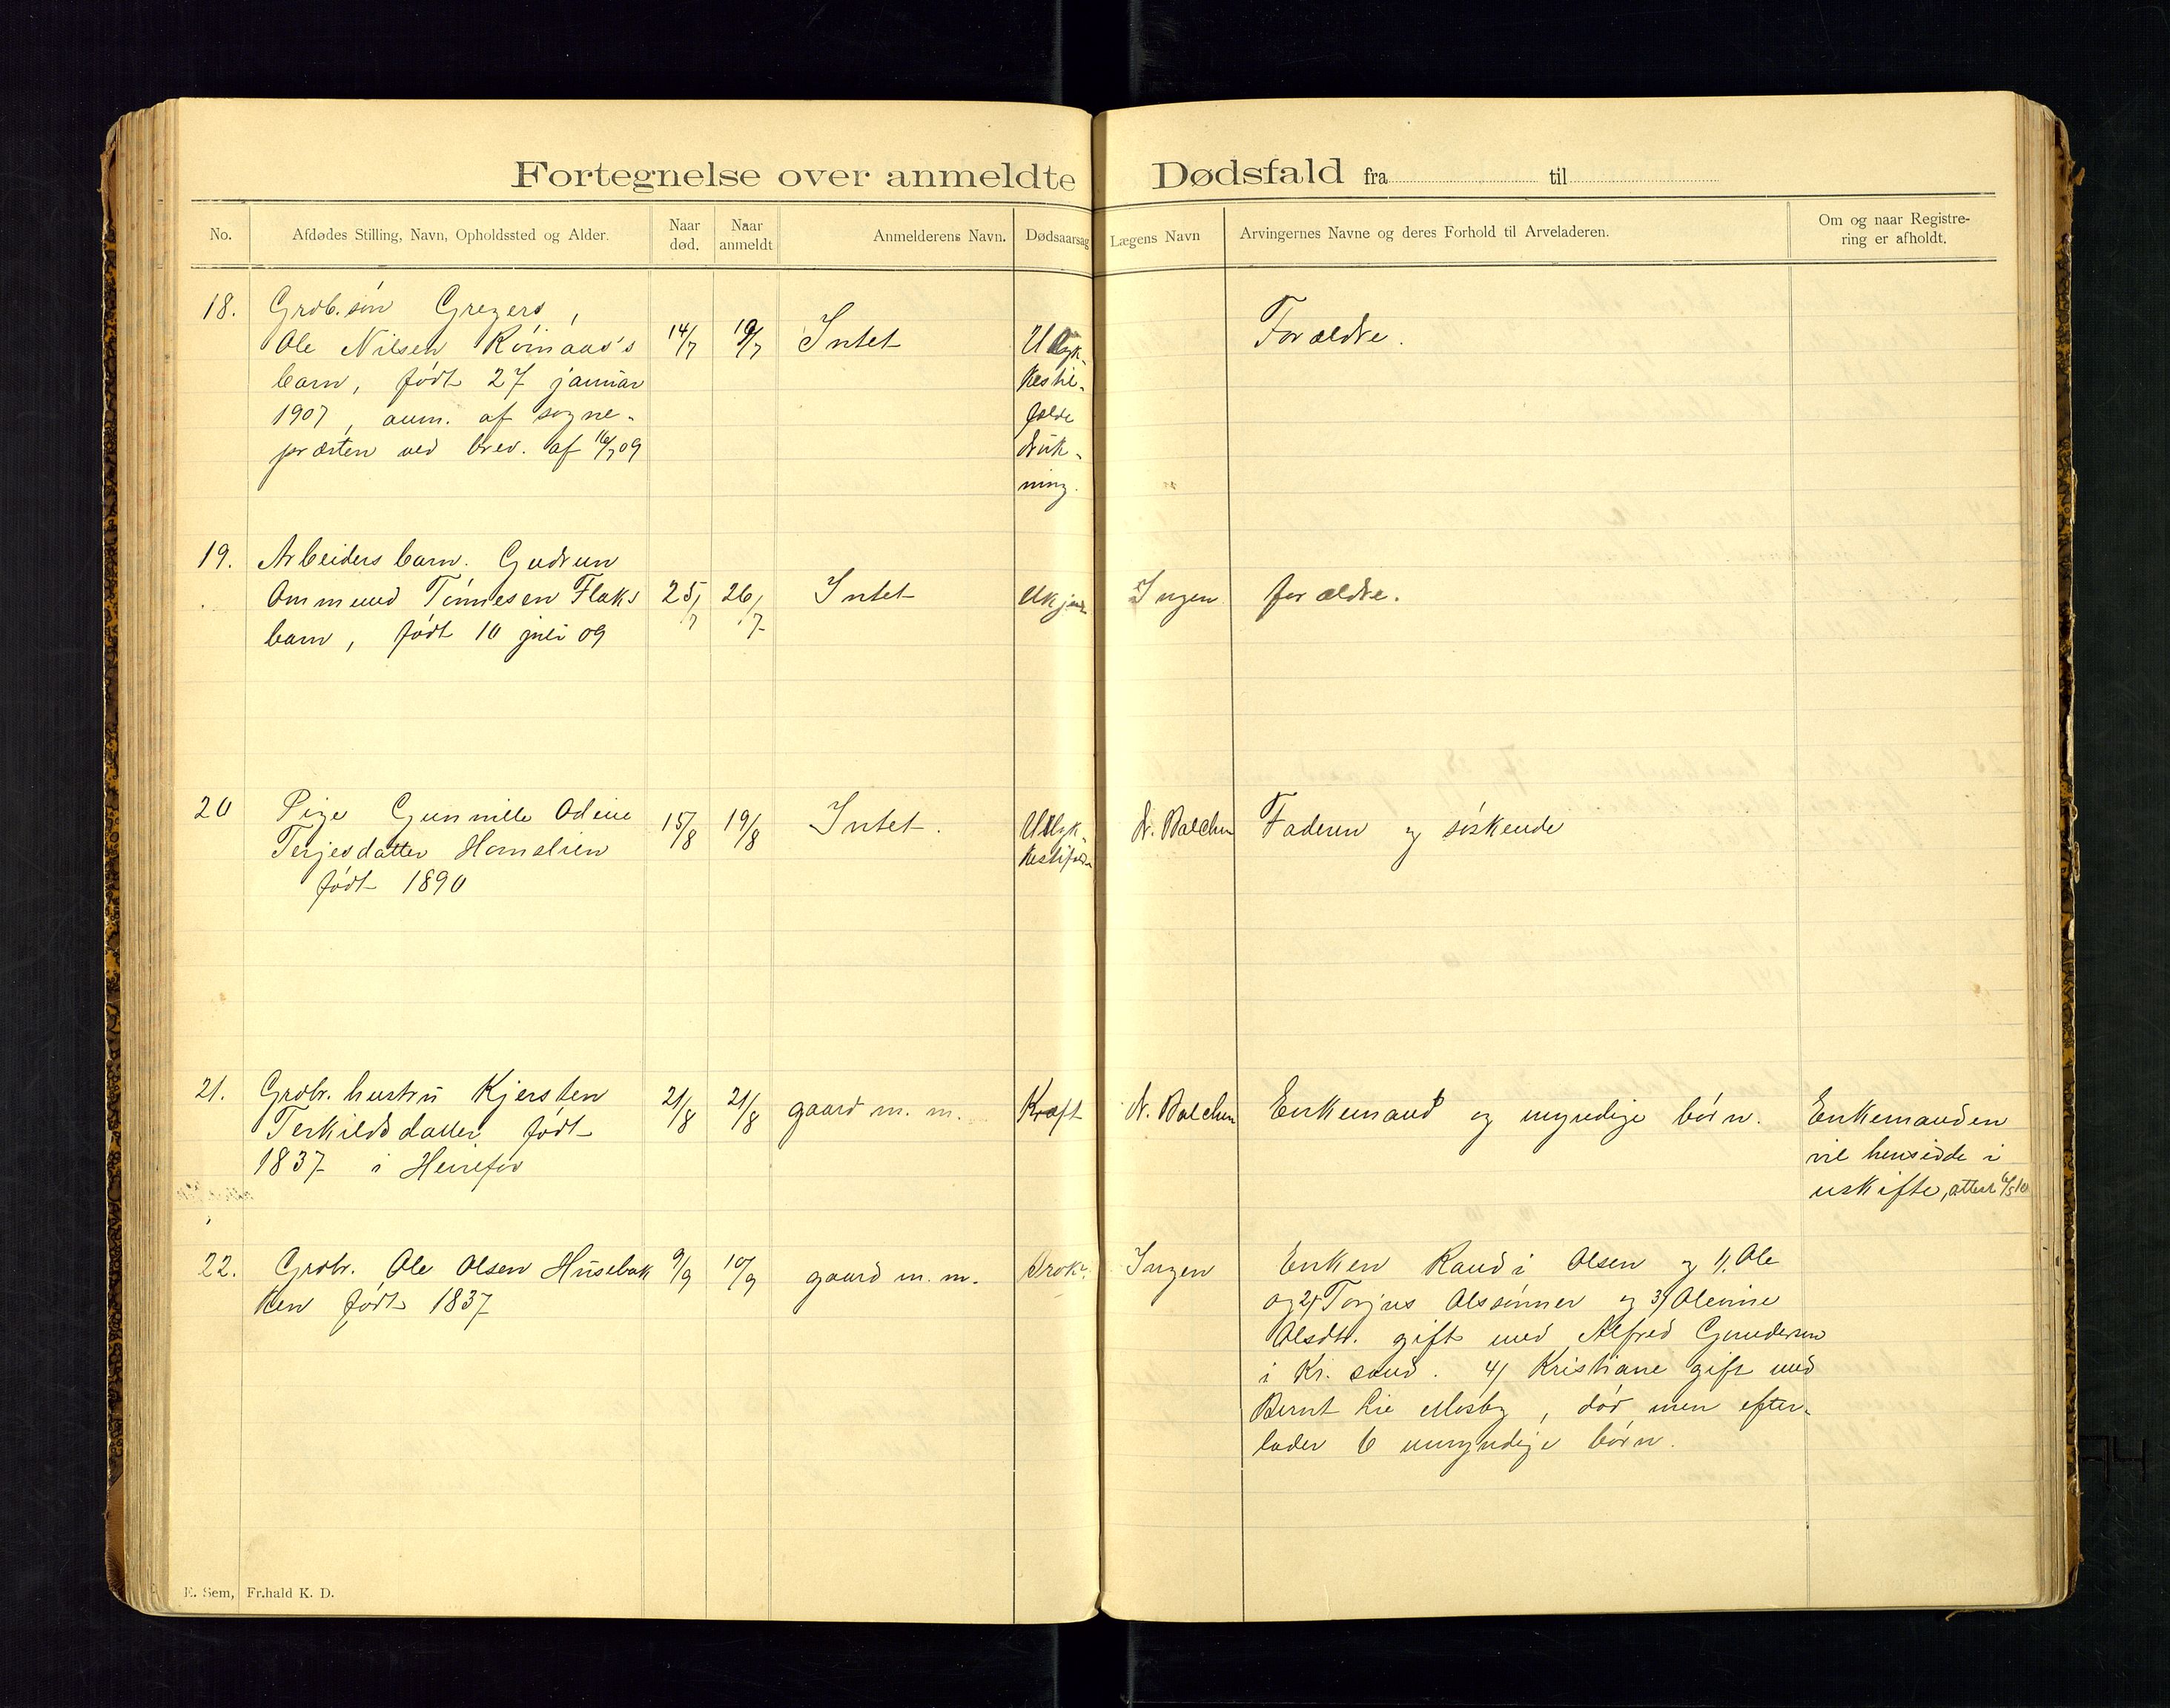 Fortegnelse over anmeldte Dødsfald fra til
No.
Afdødes Stilling, Navn, Opholdssted og Alder.
Naar død.
Naar anmeldt
Anmelderens Navn.
Dødsaarsag
Lægens Navn
Arvingernes Navne og deres Forhold til Arveladeren.
Om og naar Registre-
ring er afholdt.
18. Grdb. søn Gregers,
Ole Nilsen Róinaas's 14/7 19/7 Intet Ulyk- Forældre.
barn, født 27 januar kestil-
1907, anm. af sogne- fælde
præsten ved brev. af 16/7 09 druk-
ning.
19. Arbeiders barn. Gudrun
Ommund Tónnesen Flaks 25/7 26/7 Intet Ukjendt Ingen forældre.
barn, født 10 juli 09
20 Pige Gunnille Odine 15/8 19/8 Intet. Ulyk- dr. Balchen Faderen og søskende
Terjesdatter Homslien kestilfælde
født 1890
21. Grdbr. hustru Kjersten 21/8 21/8 gaard m. m. Kræft dr. Balchen Enkemand og myndige børn. Enkemanden
Terkildsdatter født vil hensidde i
1837 i Heirefos uskifte, attest 6/5 10
22. Grdbr. Ole Olsen Húsebak 9/9 10/9 gaard m. m. Brok. Ingen Enken Randi Olsen og 1/. Ole
ken født 1837 og 2/ Torjus Olssønner og 3/ Olevine
Olsdtr. gift med Alfred Gundersen
i Kr. sand. 4/ Kristiane gift med
Bernt Lie Mosby, død men efter-
lader 6 umyndige børn.
E. Sem, Fr.hald K. D.